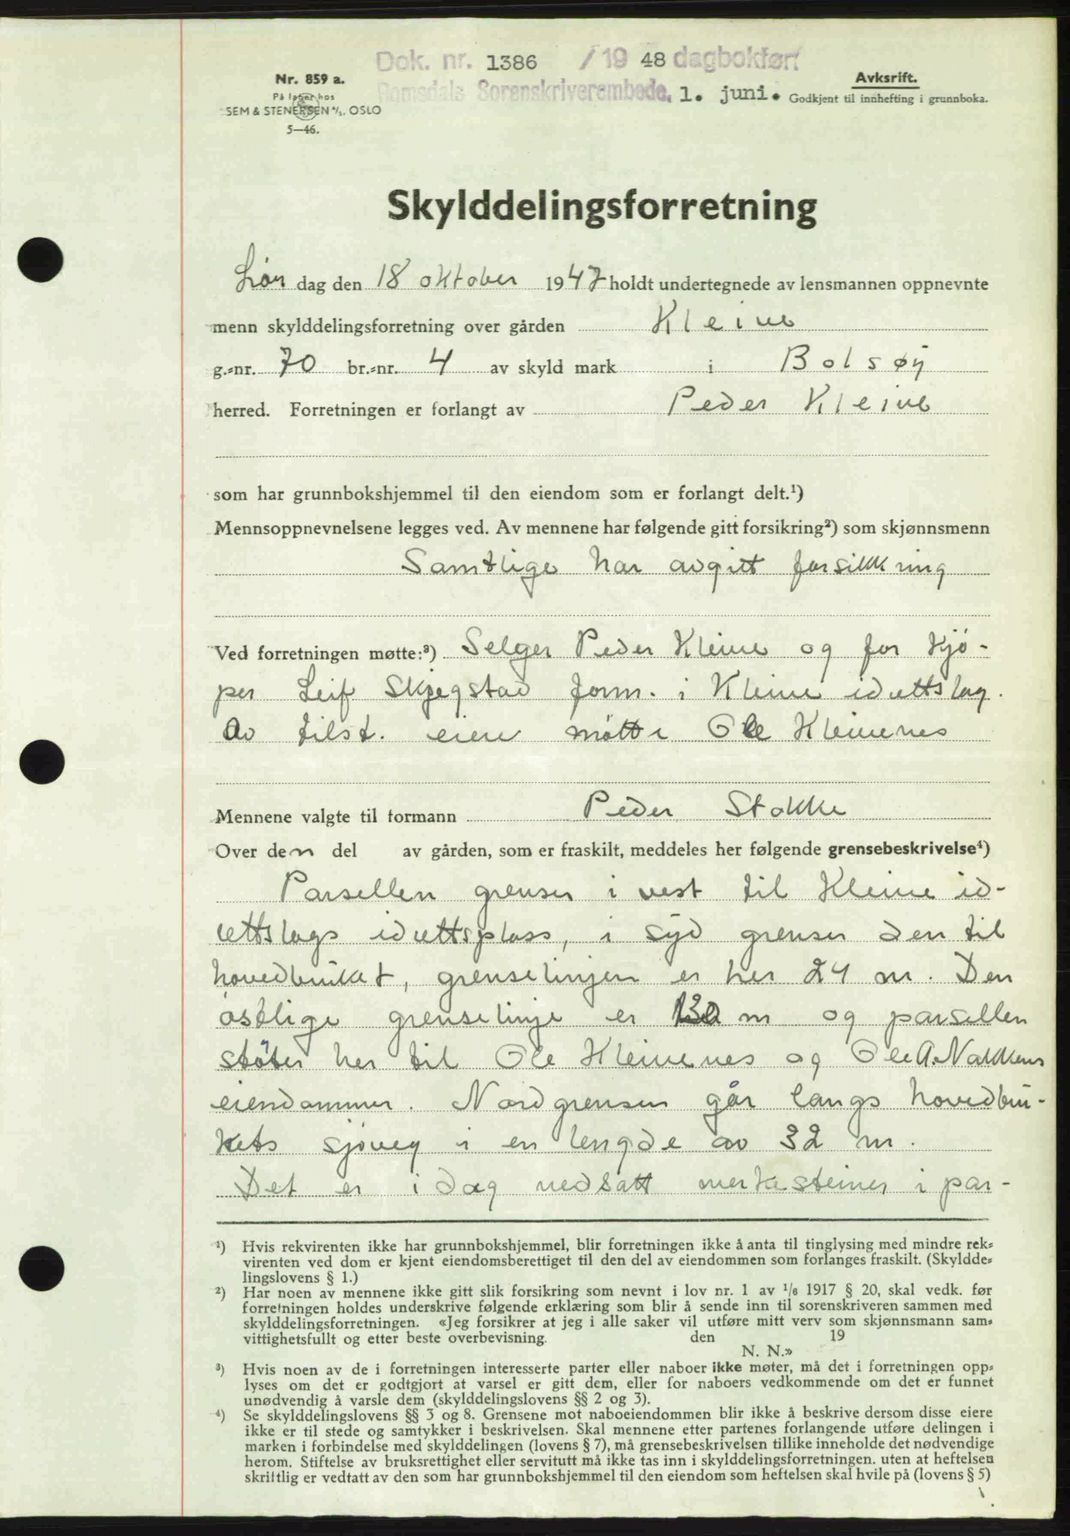 Dok. nr. 1386 /19 48 dagbokført
Romsdals Sorenskriverembede, 1. juni.
Nr. 859 a.
På lager hos
SEM & STENERSEN A/S. OSLO
5—46.
Avskrift.
Godkjent til innhefting i grunnboka.
Skylddelingsforretning
Lør dag den 18 oktober 1947 holdt undertegnede av lensmannen oppnevnte
menn skylddelingsforretning over gården Kleive
g.-nr. 70 br.-nr. 4 av skyld mark i Bolsøy
herred. Forretningen er forlangt av Peder Kleive
som har grunnbokshjemmel til den eiendom som er forlangt delt.¹)
Mennsoppnevnelsene legges ved. Av mennene har følgende gitt forsikring²) som skjønnsmenn
Samtlige har avgitt forsikkring
Ved forretningen møtte:³) Selger Peder Kleive og for kjø-
per Leif Skjegstad form. i Kleive idrettslag.
Av tilst. eiere møtte Ole Kleivenes
Mennene valgte til formann Peder Stokke
Over den del av gården, som er fraskilt, meddeles her følgende grensebeskrivelse⁴)
Parsellen grenser i vest til Kleive id-
rettslags idrettsplass, i syd grenser den til
hovedbruket, grenselinjen er her 24 m. Den
østlige grenselinje er 130 m og parsellen
støter her til Ole Kleivenes og Ole A. Nakkens
eiendommer. Nordgrensen går langs hovedbru-
kets sjøveg i en lengde av 32 m.
Det er i dag nedsatt merkesteiner i par-
¹) Hvis rekvirenten ikke har grunnbokshjemmel, blir forretningen ikke å anta til tinglysing med mindre rek-
virenten ved dom er kjent eiendomsberettiget til den del av eiendommen som forlanges fraskilt. (Skyldde-
lingslovens § 1.)
²) Har noen av mennene ikke gitt slik forsikring som nevnt i lov nr. 1 av 1/6 1917 § 20, skal vedk. før
forretningen holdes underskrive følgende erklæring som blir å sende inn til sorenskriveren sammen med
skylddelingsforretningen. «Jeg forsikrer at jeg i alle saker vil utføre mitt verv som skjønnsmann sam-
vittighetsfullt og etter beste overbevisning. den 19
N. N.»
³) Hvis noen av de i forretningen interesserte parter eller naboer ikke møter, må det i forretningen opp-
lyses om det er godtgjort at varsel er gitt dem, eller for naboers vedkommende om det er funnet
unødvendig å varsle dem (skylddelingslovens §§ 2 og 3).
⁴) Se skylddelingslovens §§ 3 og 8. Grensene mot naboeiendommen blir ikke å beskrive dersom disse eiere
ikke er til stede og samtykker i beskrivelsen. Skal mennene etter partenes forlangende utføre delingen i
marken i forbindelse med skylddelingen (lovens § 7), må grensebeskrivelsen tillike inneholde det nødvendige
herom. Stiftelse av bruksrettighet eller servitutt må ikke tas inn i skylddelingsforretningen. uten at heftelsen
skriftlig er vedtatt av den som har grunnbokshjemmel til den eiendom som heftelsen skal hvile på (lovens § 5)